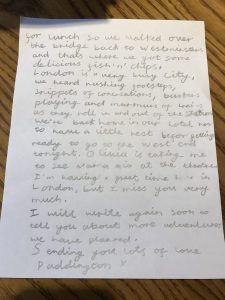 for lunch so we walked over
the bridge back to Westminster
and thats where we got some
delicious fish 'n' chips.
London is a very busy city,
we heard rushing footsteps,
snippets of conversations, buskers
playing and murmurs of trains
as they roll in and out of the station
we're back home in our hotel now
to have a little rest before getting
ready to go to the West end
tonight. is taking me
to see Mamma mia at the theatre
I'm having a great time here in
London, but I miss you very
much.
I will write again soon to
tell you about more adventures
we have planned.
Sending you lots of love
Paddington x